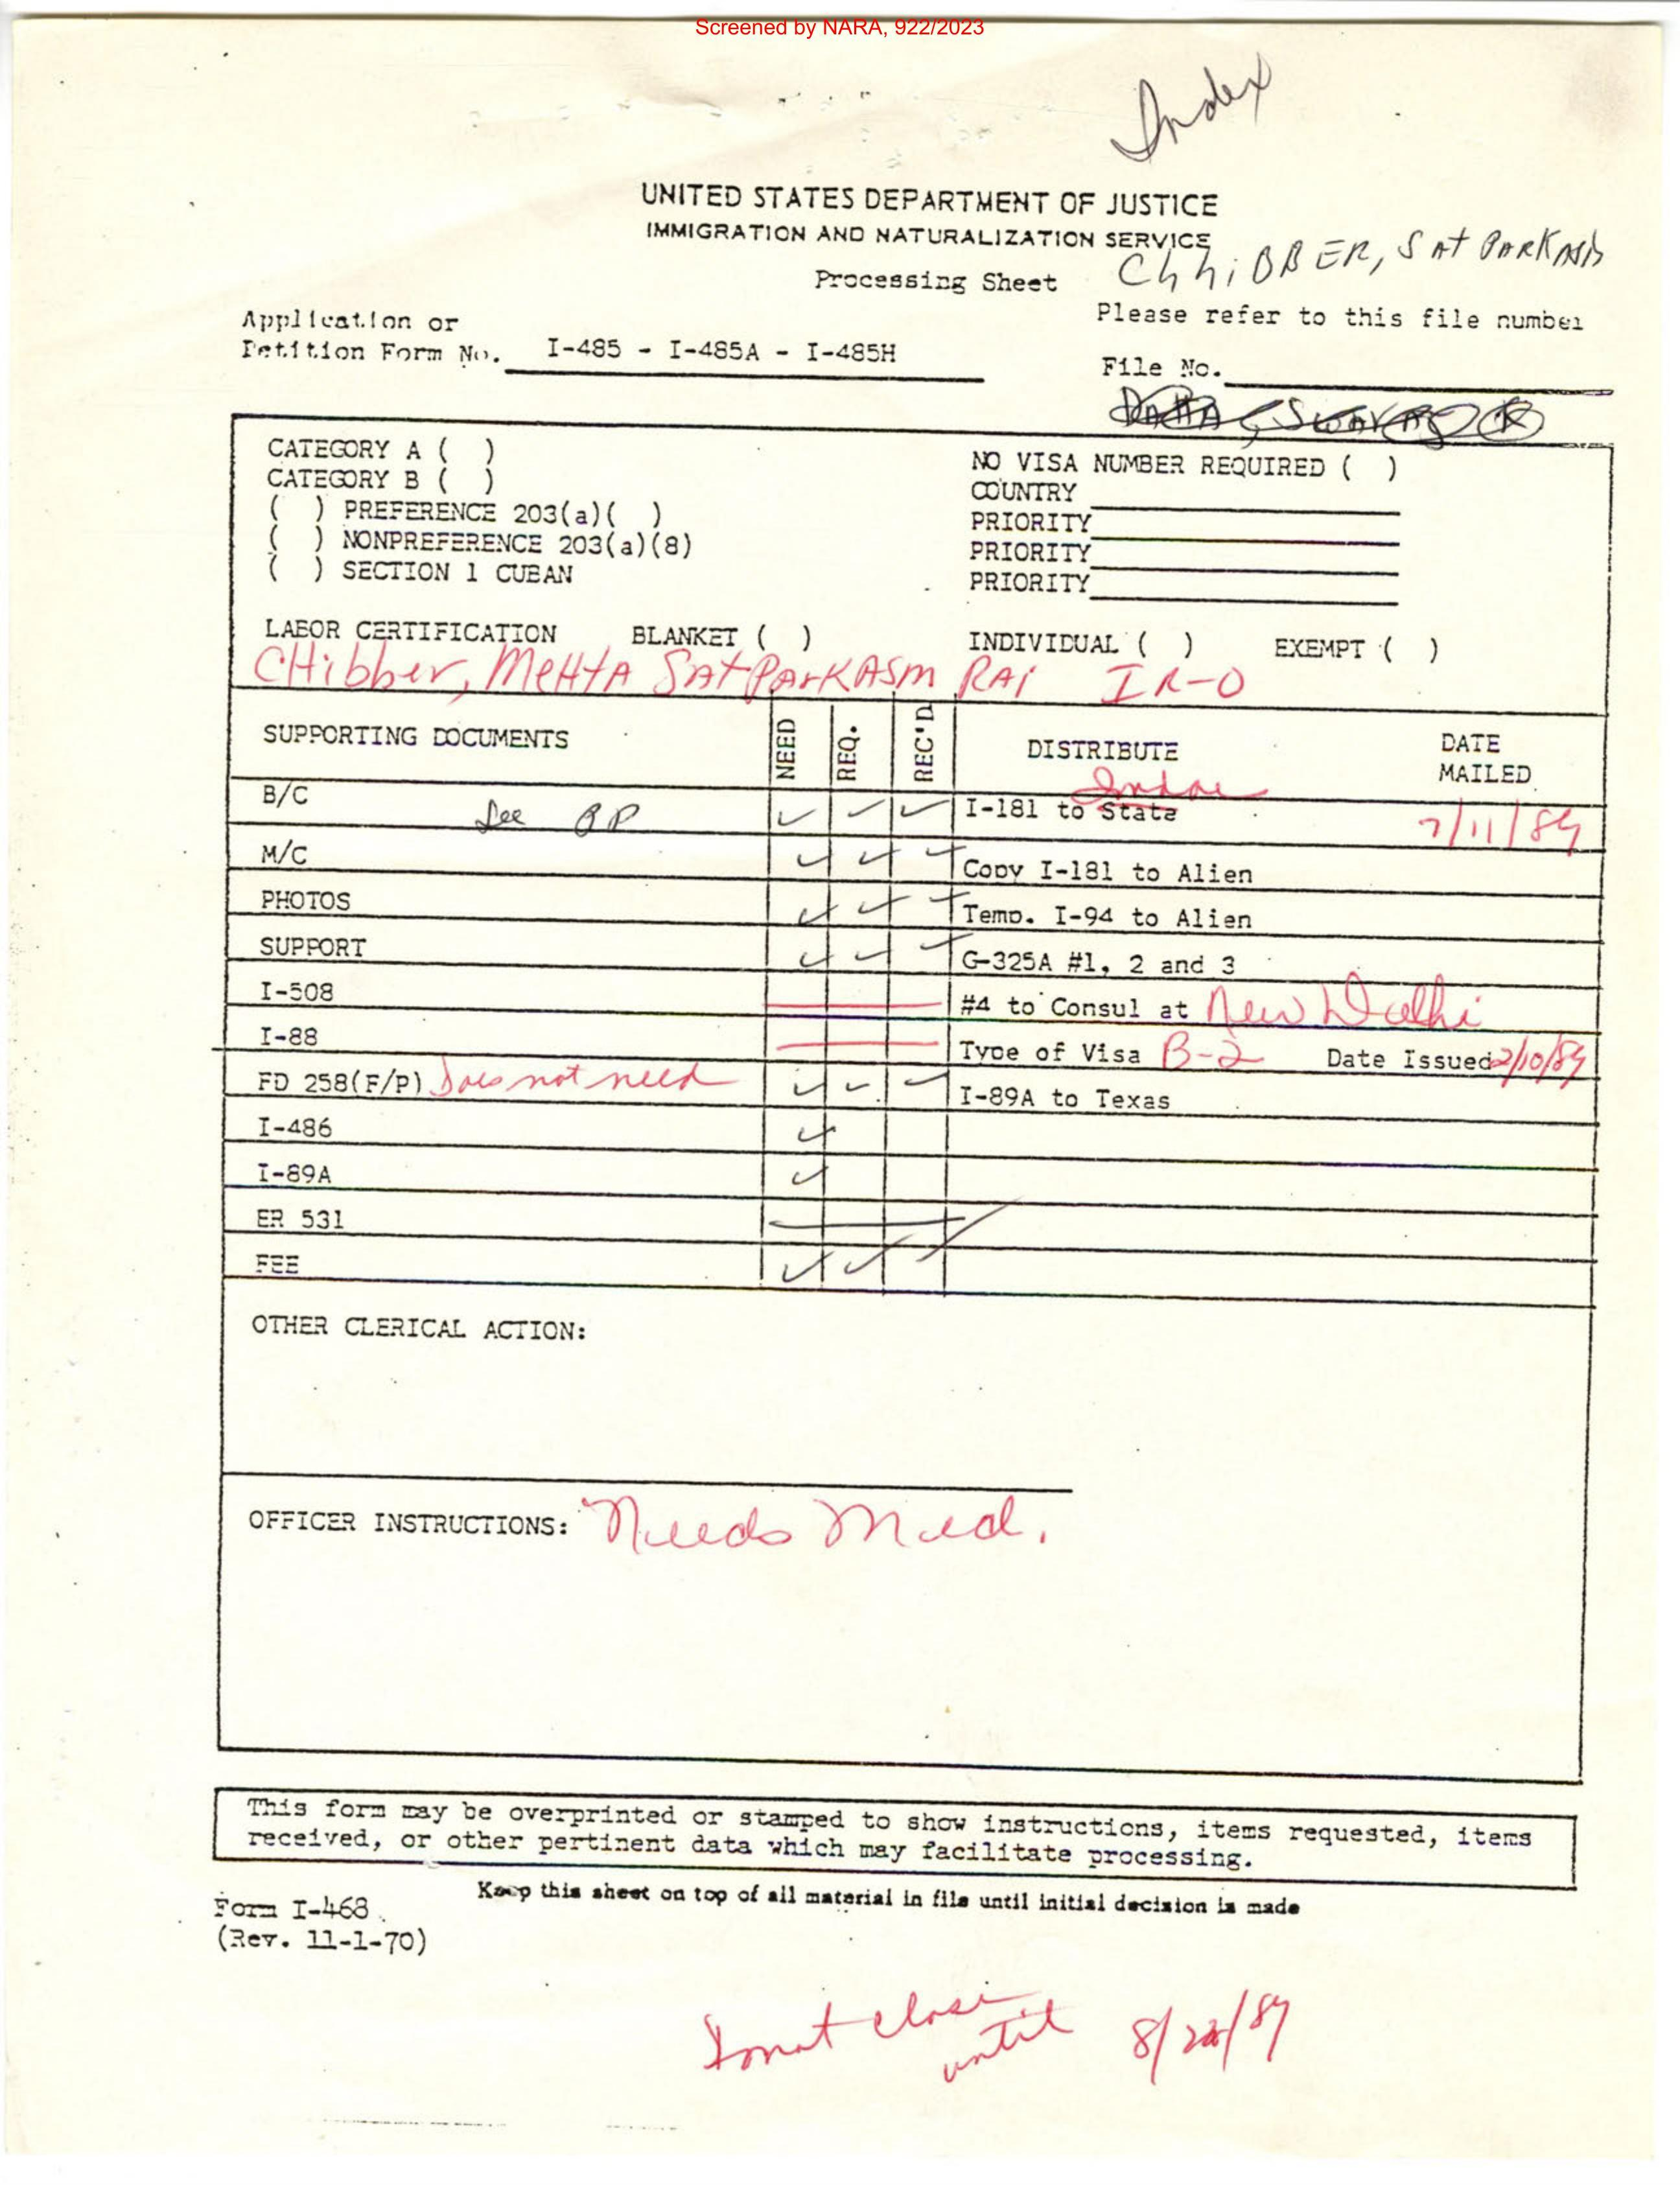 Screened by NARA, 922/2023
Index
UNITED STATES DEPARTMENT OF JUSTICE
IMMIGRATION AND NATURALIZATION SERVICE
Processing Sheet
ChhiBBER, SAt PARKASh
Application or
Petition Form No. I-485 - I-485A - I-485H
Please refer to this file number
File No.
CATEGORY A ( )
CATEGORY B ( )
( ) PREFERENCE 203(a)( )
( ) NONPREFERENCE 203(a)(8)
( ) SECTION 1 CUBAN
NO VISA NUMBER REQUIRED ( )
COUNTRY
PRIORITY
PRIORITY
PRIORITY
LABOR CERTIFICATION BLANKET ( ) INDIVIDUAL ( ) EXEMPT ( )
CHibber, MeHtA SAtParKASm RAi IR-0
SUPPORTING DOCUMENTS NEED REQ. REC'D DISTRIBUTE DATE MAILED
B/C See BP ✓ ✓ ✓ I-181 to State 7/11/89
M/C ✓ ✓ ✓ Copy I-181 to Alien
PHOTOS ✓ ✓ ✓ Temp. I-94 to Alien
SUPPORT ✓ ✓ ✓ G-325A #1, 2 and 3
I-508 #4 to Consul at New Delhi
I-88 Type of Visa B-2 Date Issued 2/10/89
FD 258(F/P) Does not need ✓ ✓ ✓ I-89A to Texas
I-486 ✓
I-89A ✓
ER 531
FEE ✓ ✓ ✓
OTHER CLERICAL ACTION:
OFFICER INSTRUCTIONS: Needs Med.
This form may be overprinted or stamped to show instructions, items requested, items
received, or other pertinent data which may facilitate processing.
Keep this sheet on top of all material in file until initial decision is made
Form I-468
(Rev. 11-1-70)
Donot close
until 8/22/89